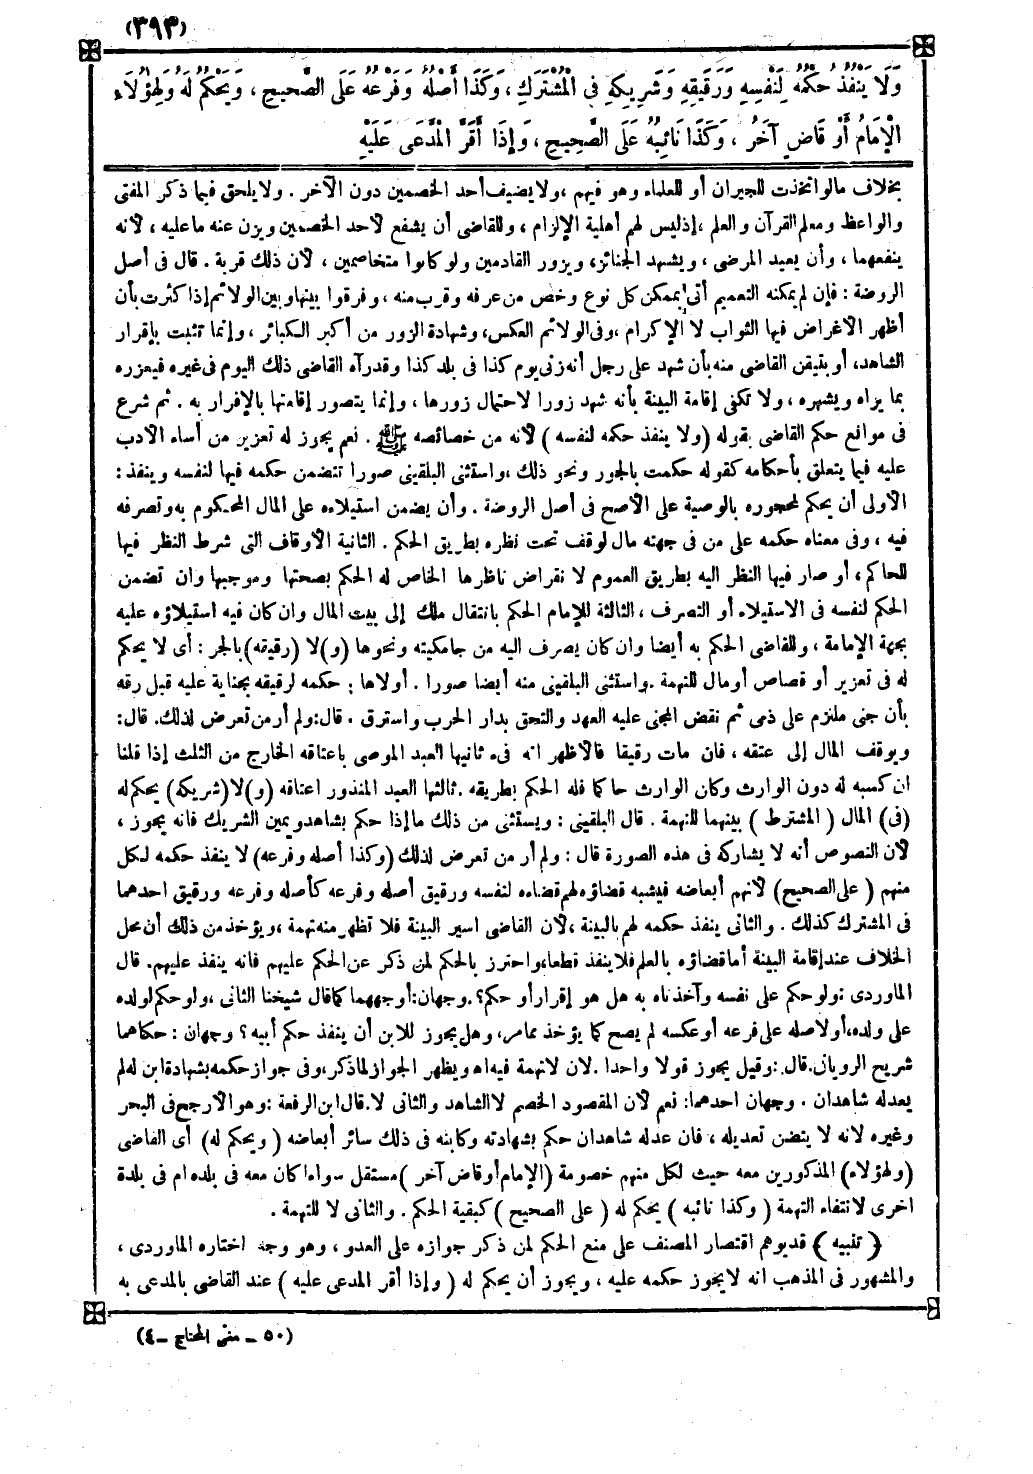 (٣٩٣)
وَلَا يَنْفُذُ حُكْمُهُ لِنَفْسِهِ وَرَقِيقِهِ وَشَرِيكِهِ فِي الْمُشْتَرَكِ ، وَكَذَا أَصْلُهُ وَفَرْعُهُ عَلَى الصَّحِيحِ ، وَيَحْكُمُ لَهُ وَلِهٰؤُلَاءِ
الْإِمَامُ أَوْ قَاضٍ آخَرُ ، وَكَذَا نَائِبُهُ عَلَى الصَّحِيحِ ، وَإِذَا أَقَرَّ الْمُدَّعَى عَلَيْهِ
بخلاف مالو اتخذت للجيران أو للعلماء وهو فيهم ، ولا يضيف أحد الخصمين دون الآخر . ولا يلحق فيما ذكر المفتى
والواعظ ومعلم القرآن والعلم ، إذ ليس لهم أهلية الإلزام ، وللقاضى أن يشفع لأحد الخصمين ويزن عنه ما عليه ، لأنه
ينفعهما ، وأن يعيد المرضى ، ويشهد الجنائز، ويزور القادمين ولو كانوا متخاصمين ، لأن ذلك قربة . قال فى أصل
الروضة : فإن لم يمكنه التعميم أتى بممكن كل نوع وخص من عرفه وقرب منه ، وفرقوا بينها وبين الولائم إذا كثرت بأن
أظهر الأغراض فيها الثواب لا الإكرام ، وفى الولائم العكس، وشهادة الزور من أكبر الكبائر ، وإنما تثبت بإقرار
الشاهد، أو بتيقن القاضى منه بأن شهد على رجل أنه زنى يوم كذا فى بلد كذا وقد رآه القاضى ذلك اليوم فى غيره فيعزره
بما يراه ويشهره ، ولا تكفى إقامة البينة بأنه شهد زورا لاحتمال زورها ، وإنما يتصور إقامتها بالإقرار به . ثم شرع
فى موانع حكم القاضى بقوله (ولا ينفذ حكمه لنفسه ) لأنه من خصائصه ﷺ . نعم يجوز له تعزير من أساء الأدب
عليه فيما يتعلق بأحكامه كقوله حكمت بالجور ونحو ذلك ، واستثنى البلقينى صورا تتضمن حكمه فيها لنفسه وينفذ :
الأولى أن يحكم لمحجوره بالوصية على الأصح فى أصل الروضة . وأن يضمن استيلاءه على المال المحكوم به وتصرفه
فيه ، وفى معناه حكمه على من فى جهته مال لوقف تحت نظره بطريق الحكم . الثانية الأوقاف التى شرط النظر فيها
للحاكم ، أو صار فيها النظر اليه بطريق العموم لا نقراض ناظرها الخاص له الحكم بصحتها وموجبها وان تضمن
الحكم لنفسه فى الاستيلاء أو التصرف ، الثالثة للإمام الحكم بانتقال ملك إلى بيت المال وان كان فيه استيلاؤه عليه
بجهة الإمامة ، وللقاضى الحكم به أيضا وان كان يصرف اليه من جامكيته ونحوها (و)لا (رقيقه)بالجر : أى لا يحكم
له فى تعزير أو قصاص أومال للتهمة .واستثنى البلقينى منه أيضا صورا . أولاها : حكمه لرقيقه بجناية عليه قبل رقه
بأن جنى ملتزم على ذمى ثم نقض المجنى عليه العهد والتحق بدار الحرب واسترق . قال:ولم أر من تعرض لذلك. قال:
ويوقف المال إلى عتقه ، فان مات رقيقا فالأظهر انه فىء ثانيها العبد الموصى باعتاقه الخارج من الثلث إذا قلنا
ان كسبه له دون الوارث وكان الوارث حاكما فله الحكم بطريقه .ثالثها العبد المنذور اعتاقه (و)لا(شريكه) يحكم له
(فى) المال ( المشترط ) بينهما للتهمة . قال البلقينى : ويستثنى من ذلك ما إذا حكم بشاهد ويمين الشريك فانه يجوز ،
لأن النصوص أنه لا يشاركه فى هذه الصورة قال : ولم أر من تعرض لذلك (وكذا أصله وفرعه) لا ينفذ حكمه لكل
منهم ( على الصحيح) لأنهم أبعاضه فيشبه قضاؤه لهم قضاءه لنفسه ورقيق أصله وفرعه كأصله وفرعه ورقيق احدهما
فى المشترك كذلك . والثانى ينفذ حكمه لهم بالبينة ،لأن القاضى اسير البينة فلا تظهر منه تهمة ،ويؤخذ من ذلك أن محل
الخلاف عند إقامة البينة أما قضاؤه بالعلم فلا ينفذ قطعا،واحترز بالحكم لمن ذكر عن الحكم عليهم فانه ينفذ عليهم. قال
الماوردى :ولو حكم على نفسه وآخذناه به هل هو إقرار أو حكم؟.وجهان:أوجههما كما قال شيخنا الثانى ،ولو حكم لولده
على ولده،أو لاصله على فرعه أو عكسه لم يصح كما يؤخذ مما مر، وهل يجوز للابن أن ينفذ حكم أبيه ؟ وجهان : حكاهما
شريح الرويانى.قال. :وقيل يجوز قولا واحدا .لان لا تهمة فيه اه ويظهر الجواز لما ذكر،وفى جواز حكمه بشهادة ابن له لم
يعدله شاهدان . وجهان احدهما: نعم لأن المقصود الخصم لا الشاهد والثانى لا.قال ابن الرفعة :وهو الأرجح فى البحر
وغيره لانه لا يتضن تعديله ، فان عدله شاهدان حكم بشهادته وكابنه فى ذلك سائر أبعاضه ( ويحكم له) أى القاضى
(ولهؤلاء) المذكورين معه حيث لكل منهم خصومة (الإمام أو قاض آخر )مستقل سواءا كان معه فى بلده ام فى بلدة
اخرى لانتفاء التهمة ( وكذا نائبه ) يحكم له ( على الصحيح )كبقية الحكم . والثانى لا للتهمة .
﴿ تنبيه ﴾ قد يوهم اقتصار المصنف على منع الحكم لمن ذكر جوازه على العدو ، وهو وجه اختاره الماوردى ،
والمشهور فى المذهب انه لا يجوز حكمه عليه ، ويجوز أن يحكم له ( وإذا أقر المدعى عليه ) عند القاضى بالمدعى به
(٥٠ – مغنى المحتاج –٤)